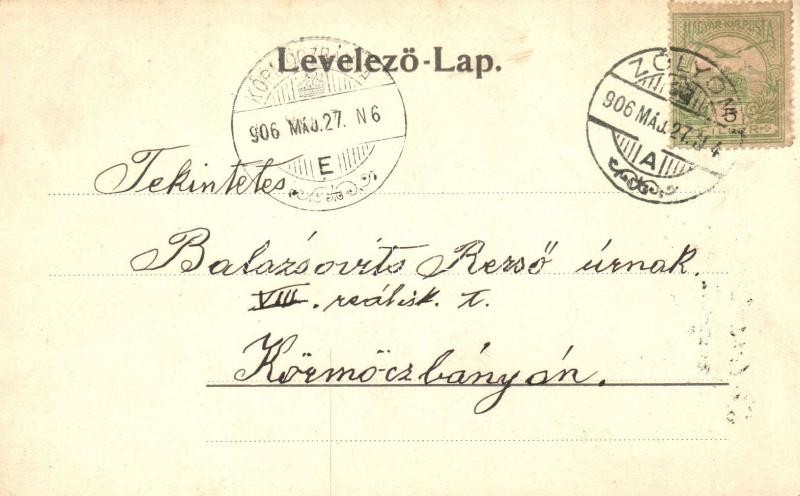 Levelezö-Lap.
MAGYAR KIR. POSTA
5
ZÓLYOM
906 MÁJ. 27. N 4
A
906 MÁJ. 27. N 6
E
Tekintetes
Balazsovits Rezső úrnak.
VIII. reálisk. t.
Körmöczbányán.